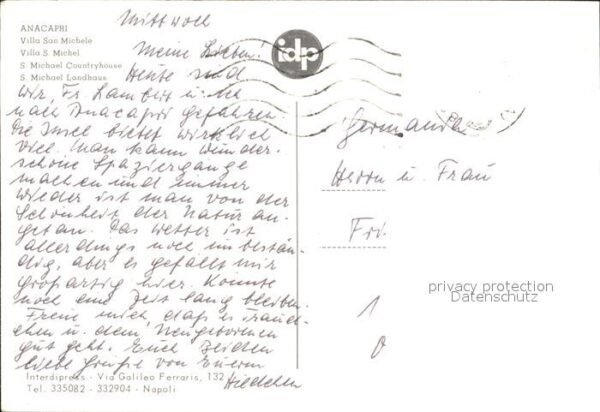 Mittwoch
ANACAPRI
Villa San Michele
Villa S. Michel
S. Michael Countryhouse
S. Michael Landhaus
idp
Meine Lieben!
Heute sind
wir, Fr. Lambert u. ich
nach Anacapri gefahren.
Die Insel bietet wirklich
viel. Man kann wunder-
schöne Spaziergänge
machen und immer
wieder ist man von der
Schönheit der Natur an-
getan. Das Wetter ist
allerdings noch unbestän-
dig, aber es gefällt mir
großartig hier. Könnte
noch eine Zeit lang bleiben.
Freue mich, daß es Traud-
chen u. dem Neugeborenen
gut geht. Euch beiden
liebe Grüße von Eurem
Hildchen
Interdipress - Via Galileo Ferraris, 132
Tel. 335082 - 332904 - Napoli
Germania
Herrn u. Frau
Fri.
privacy protection
Datenschutz
1
0